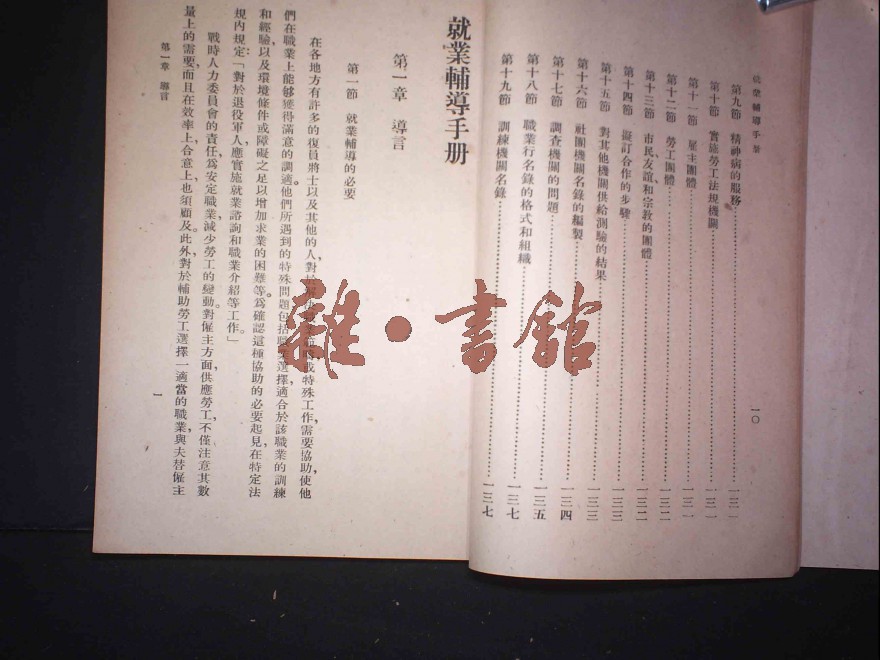 就業輔導手册
一〇
第九節　精神病的服務……一三一
第十節　實施勞工法規機關……一三一
第十一節　雇主團體……一三一
第十二節　勞工團體……一三二
第十三節　市民友誼和宗教的團體……一三二
第十四節　擬訂合作的步驟……一三三
第十五節　對其他機關供給測驗的結果……一三三
第十六節　社團機關名錄的編製……一三四
第十七節　調查機關的問題……一三五
第十八節　職業行名錄的格式和組織……一三七
第十九節　訓練機關名錄……一三七
就業輔導手册
第一章　導言
第一節　就業輔導的必要
在各地方有許多的復員將士以及其他的人，對於 或特殊工作，需要協助，使他
們在職業上能够獲得滿意的調適。他們所遇到的特殊問題包括職業選擇，適合於該職業的訓練
和經驗，以及環境條件或障礙之足以增加求業的困難等。爲確認這種協助的必要起見，在特定法
規內規定：「對於退役軍人應實施就業諮詢和職業介紹等工作。」
戰時人力委員會的責任，爲安定職業，減少勞工的變動。對僱主方面，供應勞工，不僅注意其數
量上的需要，而且在效率上合意上也須顧及。此外對於輔助勞工選擇一適當的職業，與夫替僱主
第一章　導言
一
雜·書館